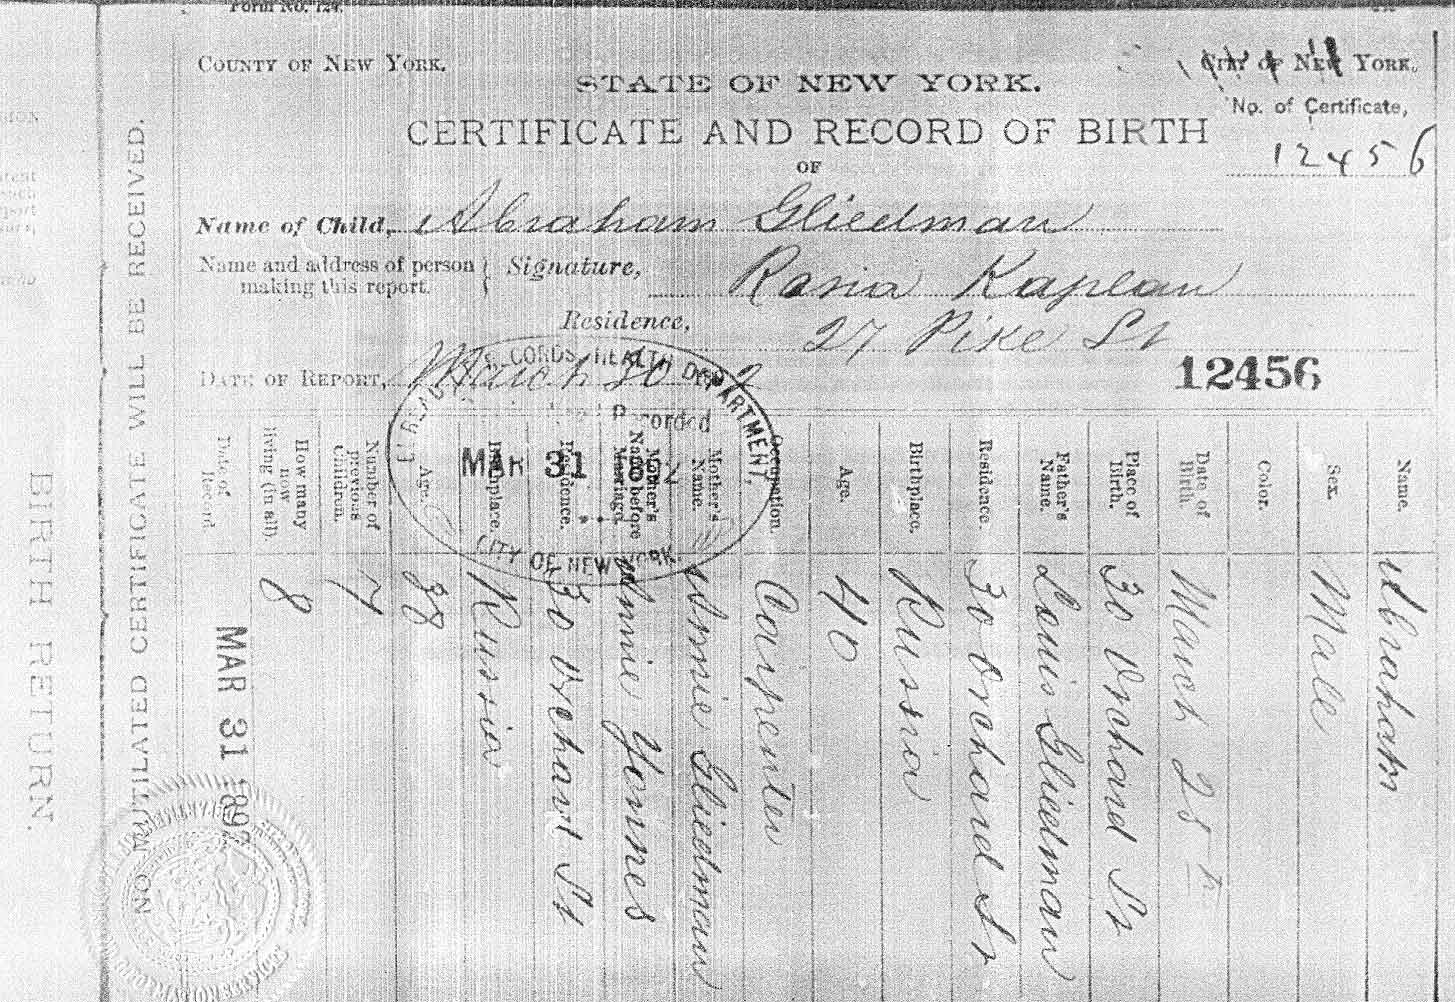 Form No. 124.
COUNTY OF NEW YORK.
CITY OF NEW YORK.
STATE OF NEW YORK.
No. of Certificate,
12456
CERTIFICATE AND RECORD OF BIRTH
OF
Name of Child, Abraham Gliedman
Name and address of person making this report.
Signature, Rosia Kaplan
Residence, 27 Pike St
DATE OF REPORT, March 30
12456
CORDS, HEALTH DEPARTMENT,
Recorded
MAR 31 1892
CITY OF NEW YORK.
Name. Abraham
Sex. Male
Color.
Date of Birth. March 25th
Place of Birth. 30 Orchard St
Father's Name. Louis Gliedman
Residence. 30 Orchard St
Birthplace. Russia
Age. 40
Occupation. Carpenter
Mother's Name. Annie Gliedman
Mother's Name before Marriage. Annie Yonnes
Residence. 30 Orchard St
Birthplace. Russia
Age. 38
Number of previous Children. 7
How many now living (in all). 8
Date of Record. MAR 31 1892
NO MUTILATED CERTIFICATE WILL BE RECEIVED.
BIRTH RETURN.